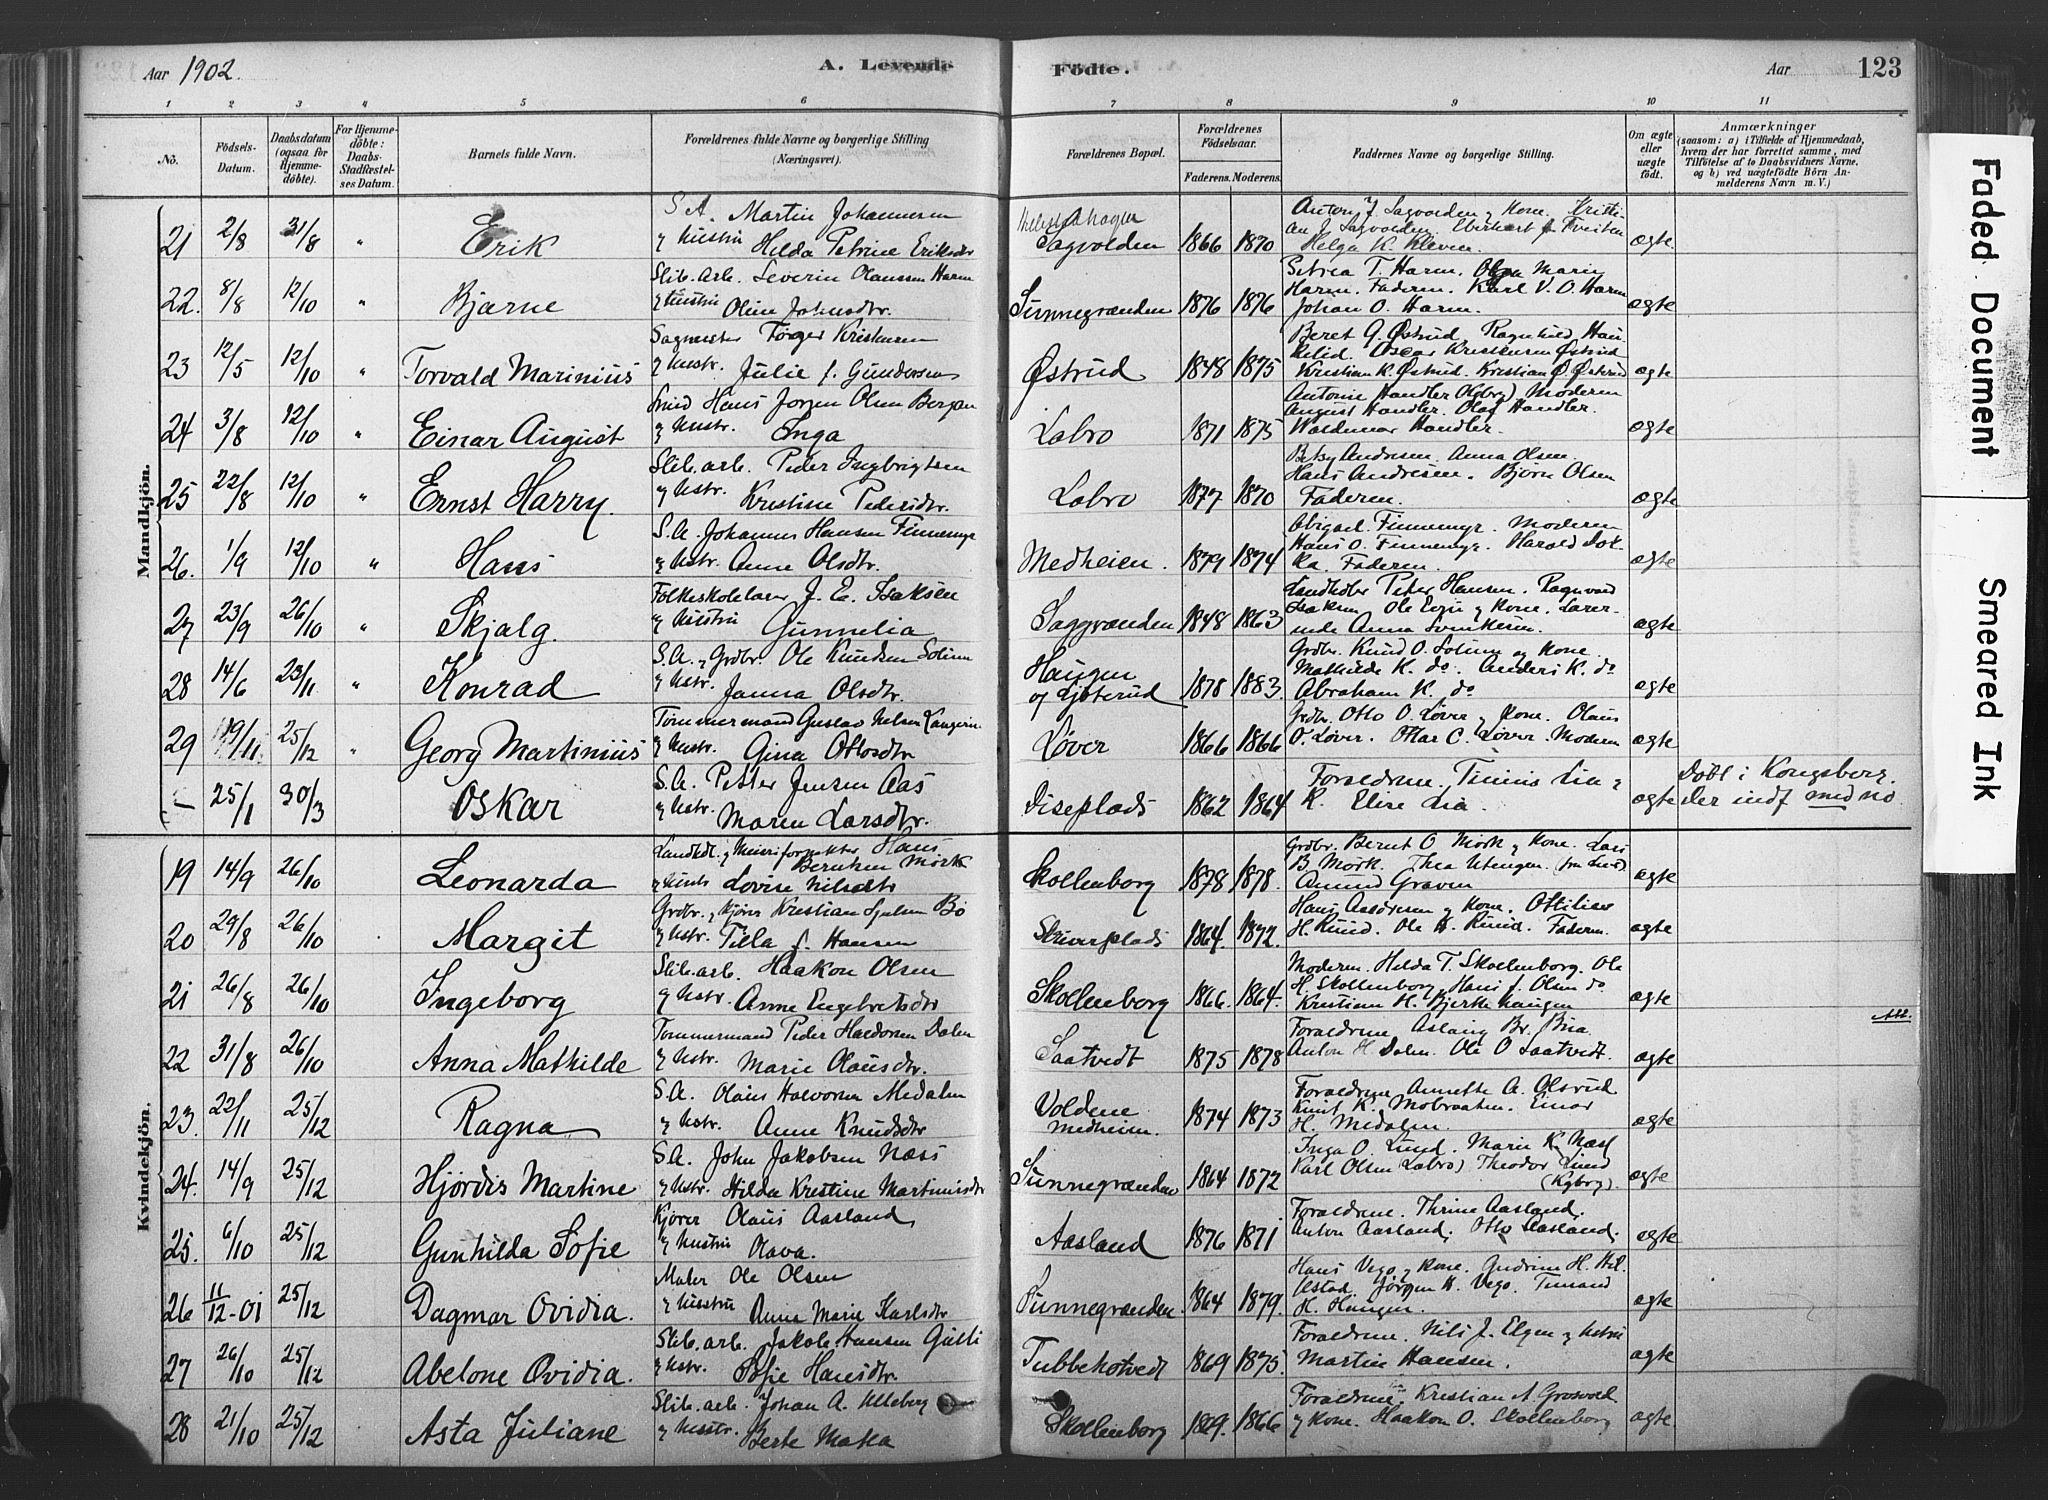 Aar 1902. A. Levende Födte. Aar 123
1 2 3 4 5 6 7 8 9 10 11
No. Födsels-Datum. Daabsdatum (ogsaa for Hjemme-döbte). For Hjemme-döbte: Daabs-Stadfæstel-ses Datum. Barnets fulde Navn. Forældrenes fulde Navne og borgerlige Stilling (Næringsvei). Forældrenes Bopæl. Forældrenes Födselsaar. Faderens. Moderens. Faddernes Navne og borgerlige Stilling. Om ægte eller uægte födt. Anmærkninger (saasom: a) i Tilfælde af Hjemmedaab, hvem der har forrettet samme, med Tilföielse af to Daabsvidners Navne, og b) ved uægtefödte Börn An-melderens Navn m. V.)
Mandkjön.
21 2/8 31/8 " Erik S.A. Martin Johannesen
y Hustru Hilda Petrine Eriksdtr Sagvolden 1866 1870 Anton J. Sagvolden y Kone. Kristi-
an J. Sagvolden. Helga K. Kleven. ægte
22. 8/8 12/10 " Bjarne Slib.arb. Severin Olaussen Harm
y Hustru Oline Johnsdtr. Sunnegrænden 1876 1876 Petrea T. Harm. Olga Marie
Harm. Faderen. Karl V. O. Harm
Johan O. Harm. ægte
23 12/5 12/10 " Torvald Marinius Sagmester Törger Kristensen
y Hustr. Julie f. Gundersen Østrud 1848 1875 Beret G. Østrud. Ragnhild Hau-
kelid. Oscar Kristensen Østrud
Kristian K. Østrud. Kristian O. Østrud ægte
24 3/8 12/10 " Einar August Smed Hans Jorgen Olsen Bergan
y Hustr. Inga Labro 1871 1875 Antonie Handler (Kgbrg) Moderen
August Handler. Olaf Handler.
Waldemar Handler. ægte
25 22/8 12/10 " Ernst Harry. Slib.arb. Peder Ingbrigtsen
y Hstr. Kristine Pedersdtr. Labro 1877 1870 Betsy Andresen. Anna Olsen.
Hans Andresen. Björn Olsen
Faderen. ægte
26. 1/9 12/10 " Hans S.A. Johannes Hansen Finnemyr
y Hstr. Anne Olsdtr. Medheien. 1879 1874 Abigael Finnemyr. Moderen
Hans O. Finnemyr. Harald Dok-
ka. Faderen. ægte
27 23/9 26/10 " Skjalg. Folkeskolelærer J. E. Isaksen
y Hustru Gunnelia Saggrænden 1848 1863 Landhdler Peter Hansen. Ragnvald
Isaksen Ole Evju y Kone. Lærer-
inde Anna ægte
28 14/6 23/11 " Konrad S.A. y Grdbr. Ole Knudsen Solum
y Hstr. Janna Olsdtr. Haugen
og Ljøterud 1878 1883. Grdbr. Knud O. Solum og Kone.
Mathilde K. do. Anders K. do
Abraham K. do ægte
29 19/11. 25/12 " Georg Martinius Tømmermand Gustav Nilsen Langerin
y Hustr. Gina Ottosdtr Løver 1866 1866 Grdbr. Otto O. Løver y Kone. Olaus
O. Løver. Othar C. Løver. Moderen ægte
25/1 30/3 Oskar S.A. Petter Jensen Aas
y Hstr. Maren Larsdtr. Diseplads 1862 1864 Forældrene. Lia y
K. Elise Lia. ægte Döbt i Kongsberg.
Der indf med no
Kvindekjön.
19 14/9 26/10 Leonarda Landhdl. y Hans
Berntsen Mörk
y Hustr Lovise Nilsdtr Skollenborg 1878 1878. Grdbr. Bernt O Mörk y Kone. Lars
B Mörk. Thea Utengen (fra Lund)
Amund Graven ægte
20 29/8 26/10 Margit Grdbr. y Kjörer Kristian Bö
y Hstr. Tilla f. Hansen Skriverplads 1864. 1872. Hans Andersen y Kone. Ottilie
H. Ruud. Ole H. Ruud. Faderen. ægte
21 26/8 26/10 Ingeborg Slib.arb. Haakon Olsen
y Hstr. Anne Engebretsdtr Skollenborg 1866. 1864. Moderen. Hilda T. Skollenborg. Ole
H. Skollenborg. Hans J. Olsen do
Kristian H. Bjerkehaugen ægte
Att.
22 31/8 26/10 Anna Mathilde Tömmermand Peder Haldorsen Dalen
y Hstr. Marie Olausdtr. Saatvedt 1875 1878 Forældrene Aslaug Br.
Anton H Dalen. Ole O Saatvedt. ægte
23. 22/11 25/12 Ragna S.A. Olaus Halvorsen Medalen
y Hstr. Anne Knudsdtr Voldene
Medheien. 1874 1873 Forældrene Annette A. Olsrud
Knut K. Mobraaten. Einar
H. Medalen. ægte
24. 14/9 25/12 Hjördis Martine S.A. John Jakobsen Næss
y Hstr. Hilda Kristine Martinusdtr Sunnegrænden 1864 1872 Inga O. Lund. Marie K. Næss
Karl Olsen Labro) Theodor Lund
(Kgbrg). ægte
25. 6/10 25/12 Gunhilda Sofie Kjörer Olaus Aasland
y Hustru Olava. Aasland 1876 1871 Forældrene. Thrine Aasland.
Anton Aasland. Otto Aasland. ægte
26 11/12-01 25/12 Dagmar Ovidia. Maler Ole Olsen
y Hustru Anne Marie Karlsdtr Sunnegrænden. 1864 1879. Hans Vego y Kone. Gudrun H. Hel-
Jörgen H. Vego.
H. Haugen. ægte
27 26/10 25/12 Abelone Ovidia. Slib.arb. Jakob Hansen
y Hstr. Sofie Hansdtr. Tubbehotvedt 1869 1875 Forældrene. Nils J. Elgen y Hstru
Martin Hansen. ægte
28 21/10 25/12 Asta Juliane Slib.arb. Johan A. Ulleberg
y Hustr. Berte Maka Skollenborg 1869. 1866 Forældrene. Kristian A Grosvold
y Kone. Haakon O. Skollenborg ægte
Faded Document
Smeared Ink